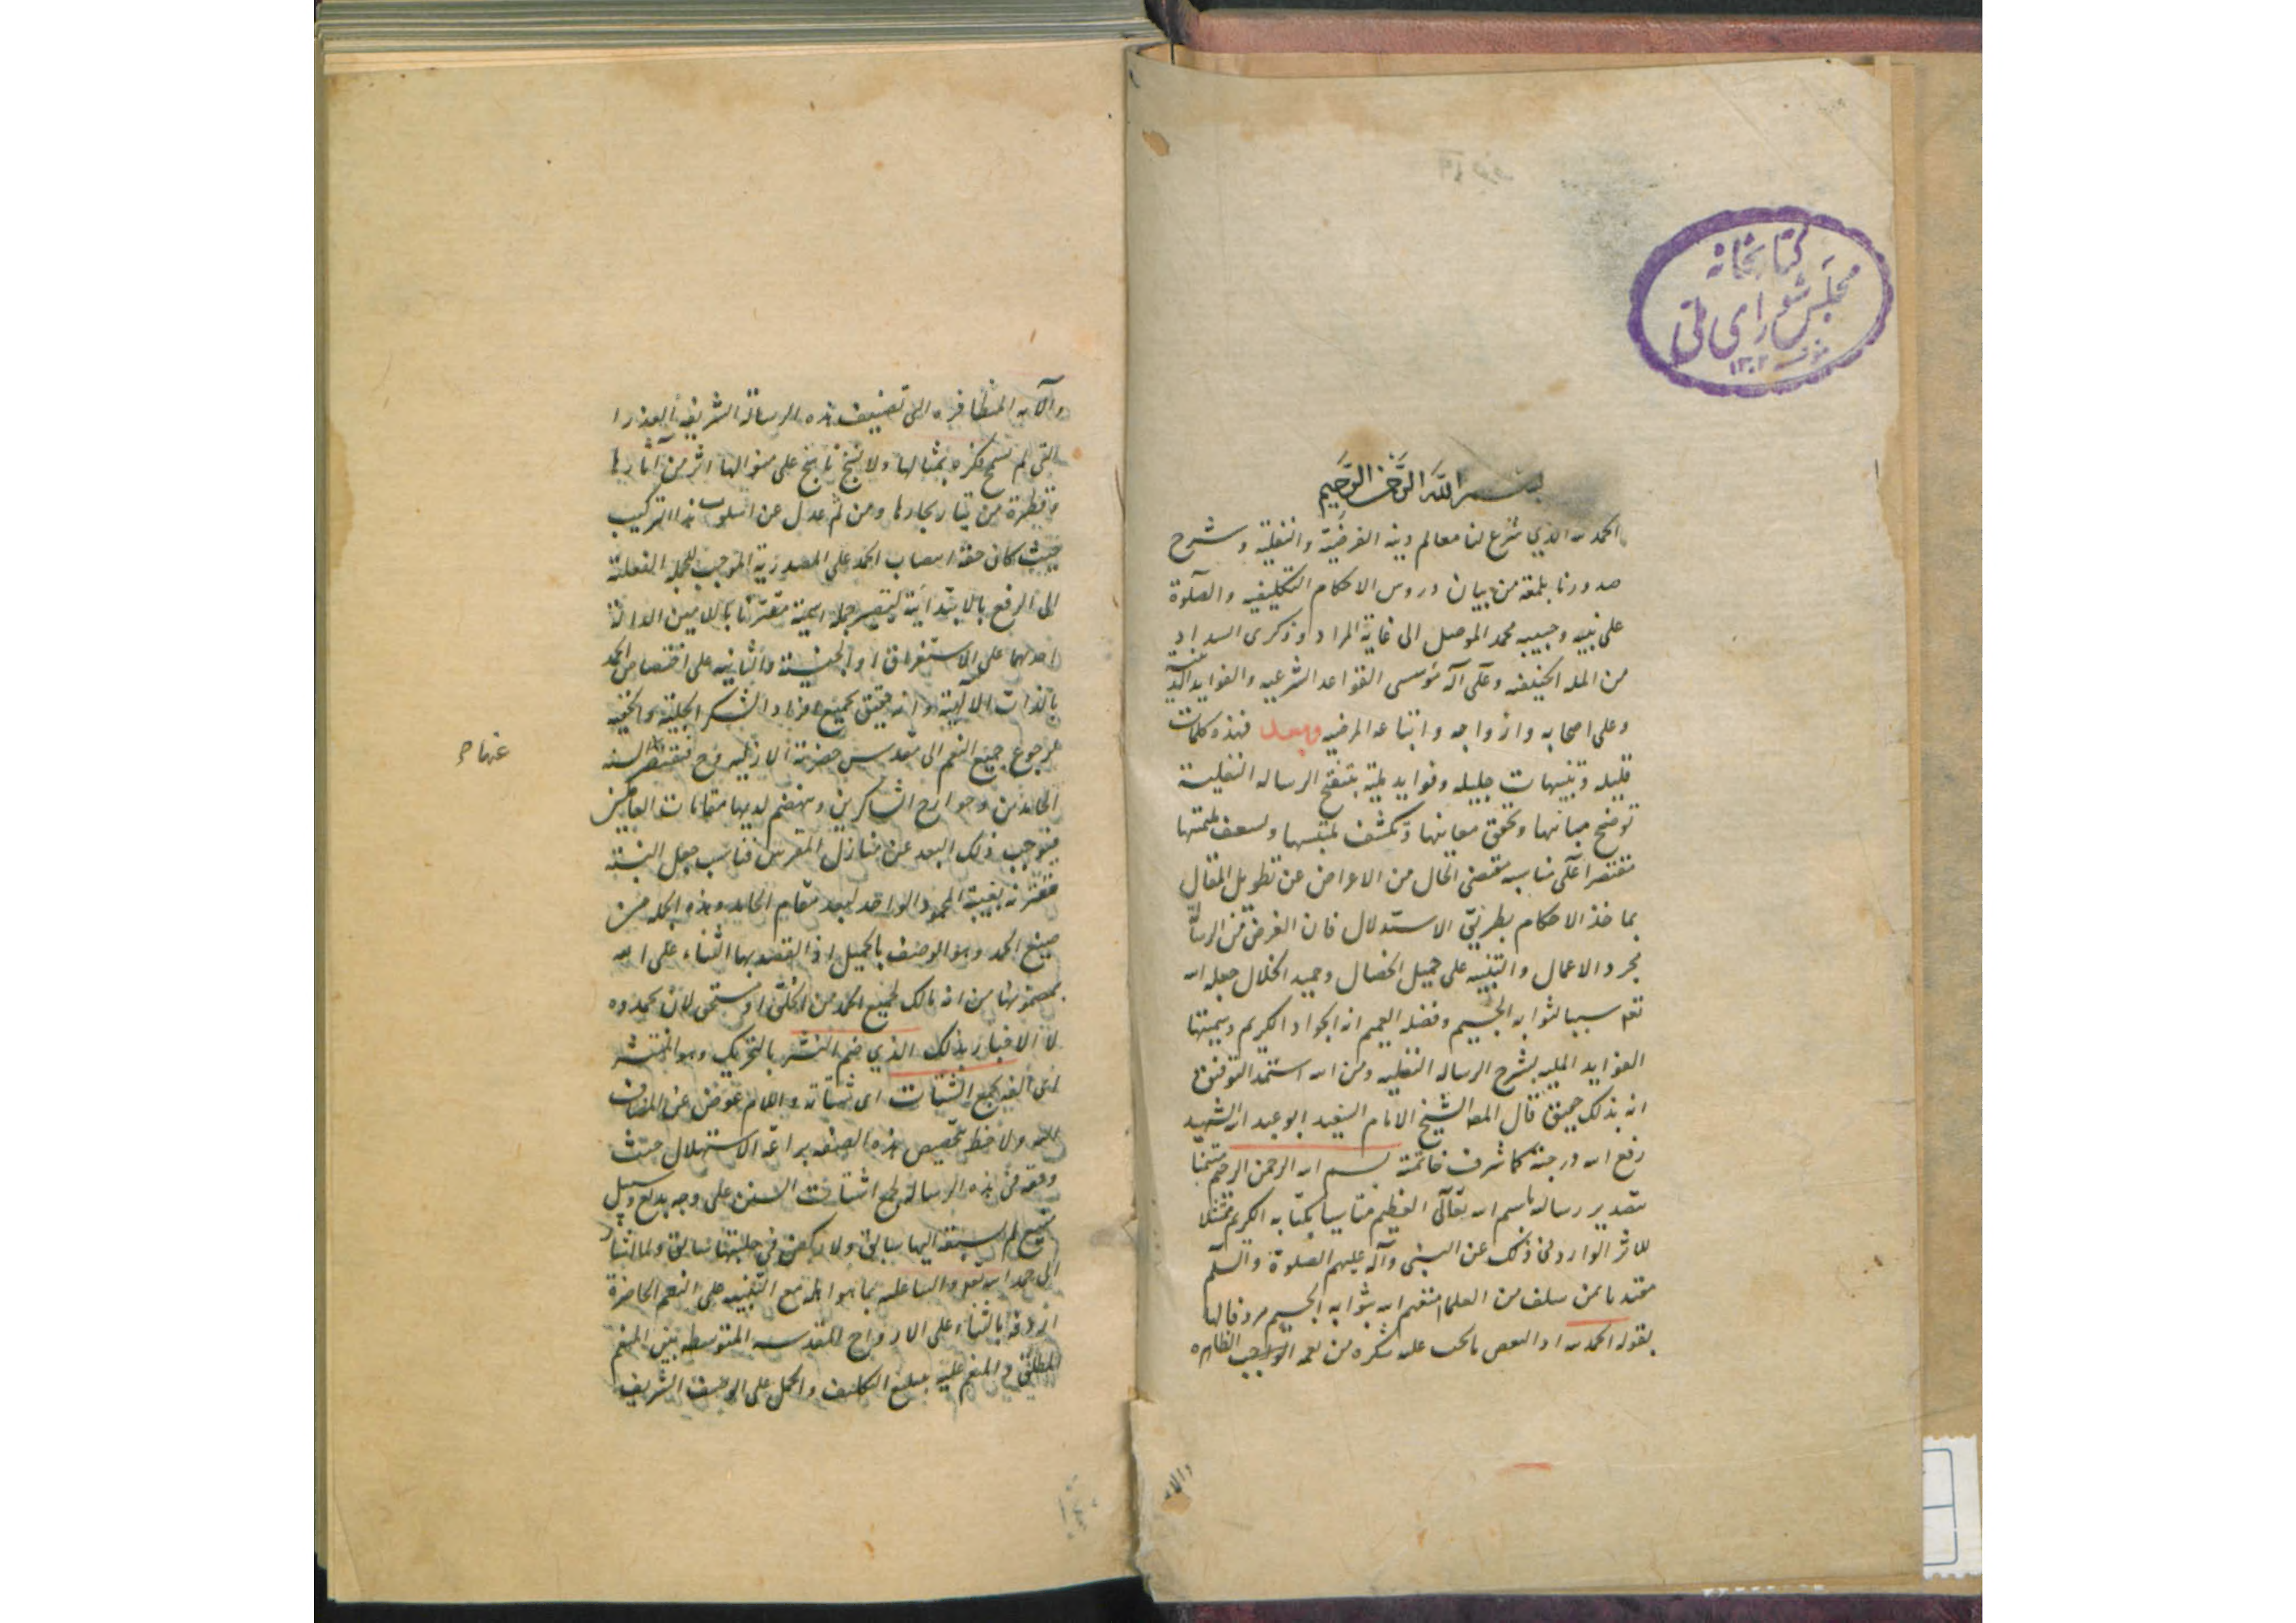 كتابخانه
مجلس شورای ملی
۱۳۰۲
بسم الله الرحمن الرحيم
الحمد لله الذي شرع لنا معالم دينه الفرضية والنفلية وشرح
صدورنا بلمعة من بيان دروس الاحكام التكليفيه والصلوة
على نبيه وحبيبه محمد الموصل الى غاية المراد وذكرى السداد
من المله الحنيفيه وعلى آله مؤسسى القواعد الشرعيه والفوايد
وعلى اصحابه وازواجه واتباعه المرضيه وبعد فهذه كلمات
قليله وتنبيهات جليله وفوايد مليه بتنقيح الرساله النفلية
توضح مبانيها وتحقق معانيها وتكشف ملتبسها وتسعف ملتمسها
مقتصرا على ما يناسب مقتضى الحال من الاعراض عن تطويل المقال
بماخذ الاحكام بطريق الاستدلال فان الغرض من الرسالة
مجرد الاعمال والتنبيه على جميل الخصال وحميد الخلال جعله الله
تعا سببا لثوابه الجسيم وفضله العميم انه الجواد الكريم وسميتها
الفوايد المليه بشرح الرساله النفليه ومن الله استمد التوفيق
انه بذلك حقيق قال المصـ الشيخ الامام السعيد ابو عبد الله الشهيد
رفع الله درجته كما شرف خاتمته بسم الله الرحمن الرحيم متيمنا
بتصدير رسالته باسم الله تعالى العظيم متاسيا بكتابه الكريم ممتثلا
للاثر الوارد في ذلك عن النبى وآله عليهم الصلوة والسلم
مقتديا بمن سلف من العلماء متعهم الله بثوابه الجسيم مردفا لها
بقوله الحمد لله اداء لبعض ما يجب عليه شكره من نعمه الواجب الظاهره
والاء
والآئه المتظافره التى تصنيف هذه الرسالة الشريفه العذرا
التى لم تسمح فكره بمثالها ولا نسج ناسج على منوالها اثر من آثارها
وقطرة من تيار بحارها ومن ثم عدل عن اسلوب هذا التركيب
حيث كان حقه انتصاب الحمد على المصدرية الموجب للجمله الفعلية
الى الرفع بالابتدائية ليتصير جمله اسمية مقترنا باللامين الدالة
احديهما على الاستغراق او الجنسية والثانيه على اختصاص الحمد
بالذات الالهية وانه حقيق بجميع افراد الشكر الجلية والخفيه
لرجوع جميع النعم الى مقدس حضرته الازليه وح فتقتصر السنه
عنها ح
الحامدين وجوارح الشاكرين وتهضم لديها مقامات العابدين
فيوجب ذلك البعد عن منازل المقربين فناسب جعل النسبة
مقترنه بغيبة المحمود الواحد لبعد مقام الحامد وهذه الجمله من
صيغ الحمد وهو الوصف بالجميل اذ القصد بها الثناء على الله
بمضمونها من انه مالك لجميع الحمد من الخلق او مستحق لان يحمدوه
لا الاخبار بذلك الذي ضم النشر بالتحريك وهو المنتشر
اى المبدد بجمع الشتات اى شتاته واللام عوض عن المضاف
اليه ولاحظ بتخصيص هذه الصفه براعة الاستهلال حيث
وفقه في هذه الرساله لجمع اشتات السنن على وجه بديع وسبيل
منيع لم يسبقه اليها سابق ولا ركض في حلبتها سابق ولما انتهى
الى حمد الله تعا والثنا عليه بما هو اهله مع التنبيه على النعم الحاضرة
اردفه بالثناء على الارواح المقدسه المتوسطه بين المنعم
المطلق والمنعم عليه بتبليغ التكليف والحمل على الوصف الشريف